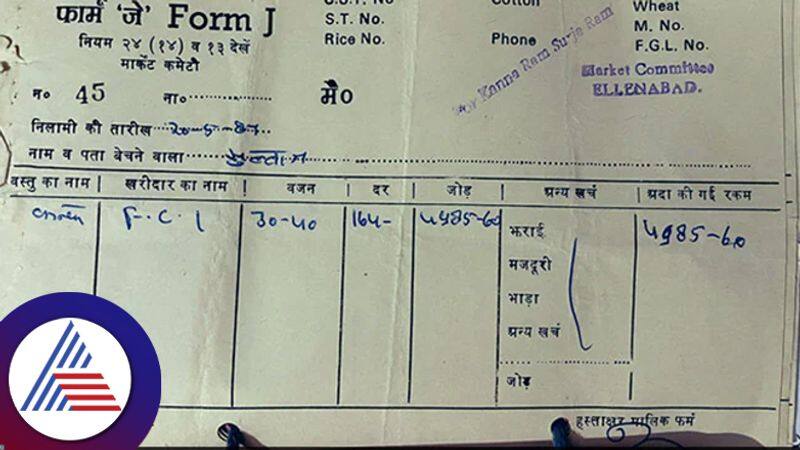 फार्म 'जे' Form J
नियम २४ (१४) व १३ देखें
मार्केट कमेटी
S.T. No.
Rice No.
Cotton
Phone
Wheat
M. No.
F.G.L. No.
For Kanna Ram Surja Ram
Market Committee
ELLENABAD.
न० 45 ता० मै०
निलामी की तारीख
नाम व पता बेचने वाला
वस्तु का नाम खरीदार का नाम वजन दर जोड़ अन्य खर्च अदा की गई रकम
F.C.I 30-40 164-
भराई
मजदूरी
भाड़ा
अन्य खर्च
जोड़
हस्ताक्षर मालिक फर्म